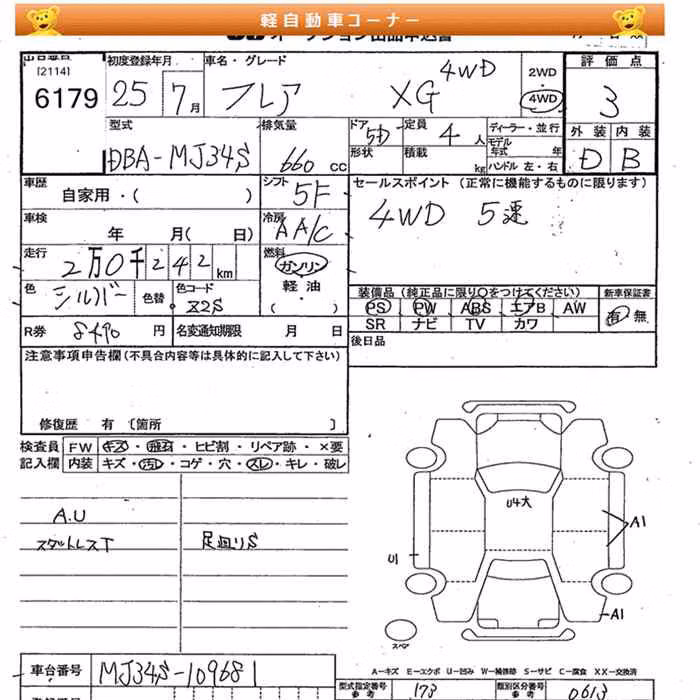 軽自動車コーナー
オークション出品申込書
出品番号 初度登録年月 車名・グレード 評価点
[2114]
6179 25年 7月 フレア XG 4WD 2WD 4WD 3
型式 排気量 ドア 5D 定員 4人 ディーラー・並行 外装 内装
DBA-MJ34S 660cc 形状 積載 kg モデル年式 年 ハンドル 左・右 D B
車歴 シフト セールスポイント (正常に機能するものに限ります)
自家用・( ) 5F 4WD 5速
車検 年 月( 日) 冷房 AA/C
走行 2万0千242km 燃料 ガソリン
軽油・( )
色 シルバー 色替 色コード Z2S
装備品 (純正品に限り○をつけてください) 新車保証書
PS PW ABS エアB AW 有 無
SR ナビ TV カワ
R券 8490円 名変通知期限 月 日 後日品
注意事項申告欄(不具合内容等は具体的に記入して下さい)
修復歴 有 〔箇所 〕
検査員 FW キズ・飛石・ヒビ割・リペア跡・×要
記入欄 内装 キズ・汚レ・コゲ・穴・スレ・キレ・破レ
A.U
スタットレスT 足廻りS
U4大
A1
U1
A1
スペア
A-キズ E-エクボ U-凹み W-補修跡 S-サビ C-腐食 XX-交換済
車台番号 MJ34S-109681 型式指定番号 参考 173 類別区分番号 参考 0613